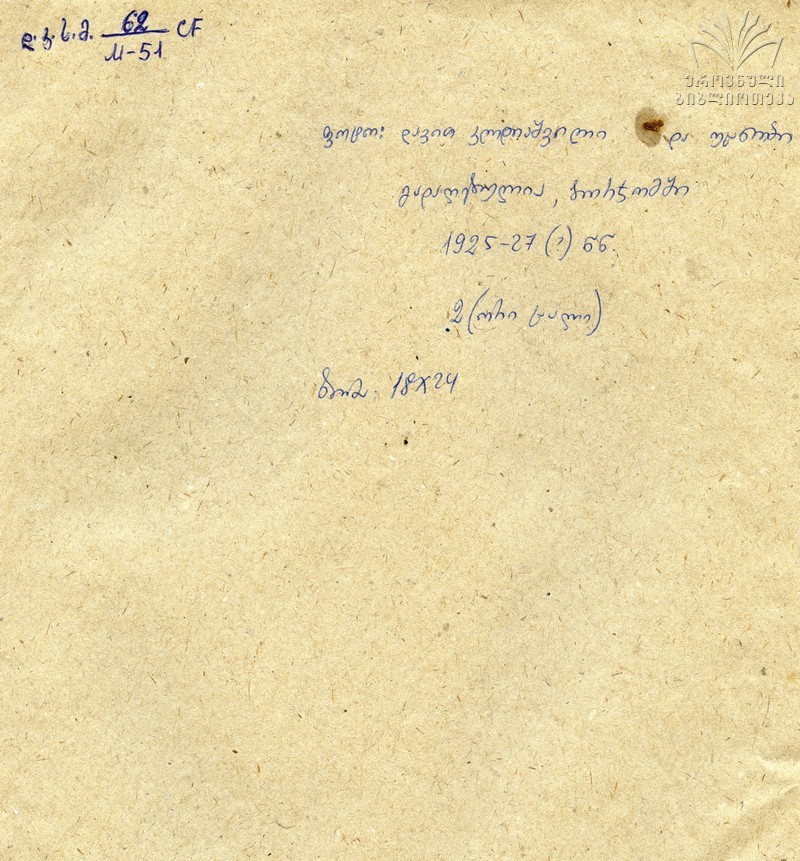 დ. კ. ს. მ. 62 CF
M-51
ეროვნული
ბიბლიოთეკა
ფოტო: დავით კლდიაშვილი და უცნობი
გადაღებულია, ბორჯომში
1925-27 (?) წწ.
2 (ორი ცალი)
ზომა. 18X24